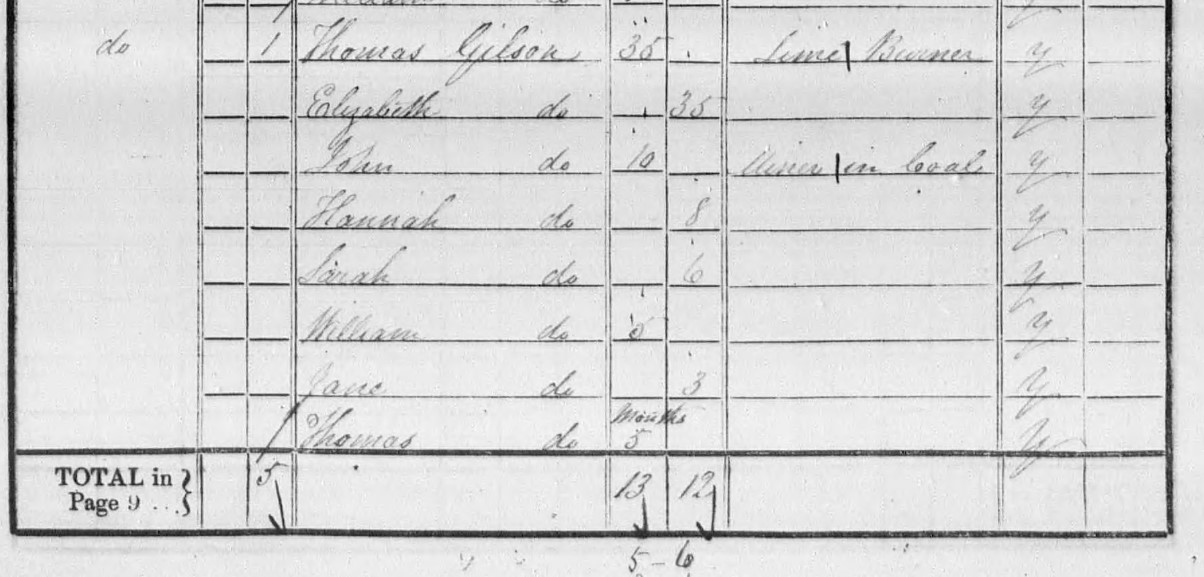 do 1 Thomas Gilson 35 Lime Burner y
Elizabeth do 35 y
John do 10 Miner in Coal y
Hannah do 8 y
Sarah do 6 y
William do 5 y
Jane do 3 y
Months
Thomas do 5 y
TOTAL in
Page 9 . . } 5 13 12
5 - 6